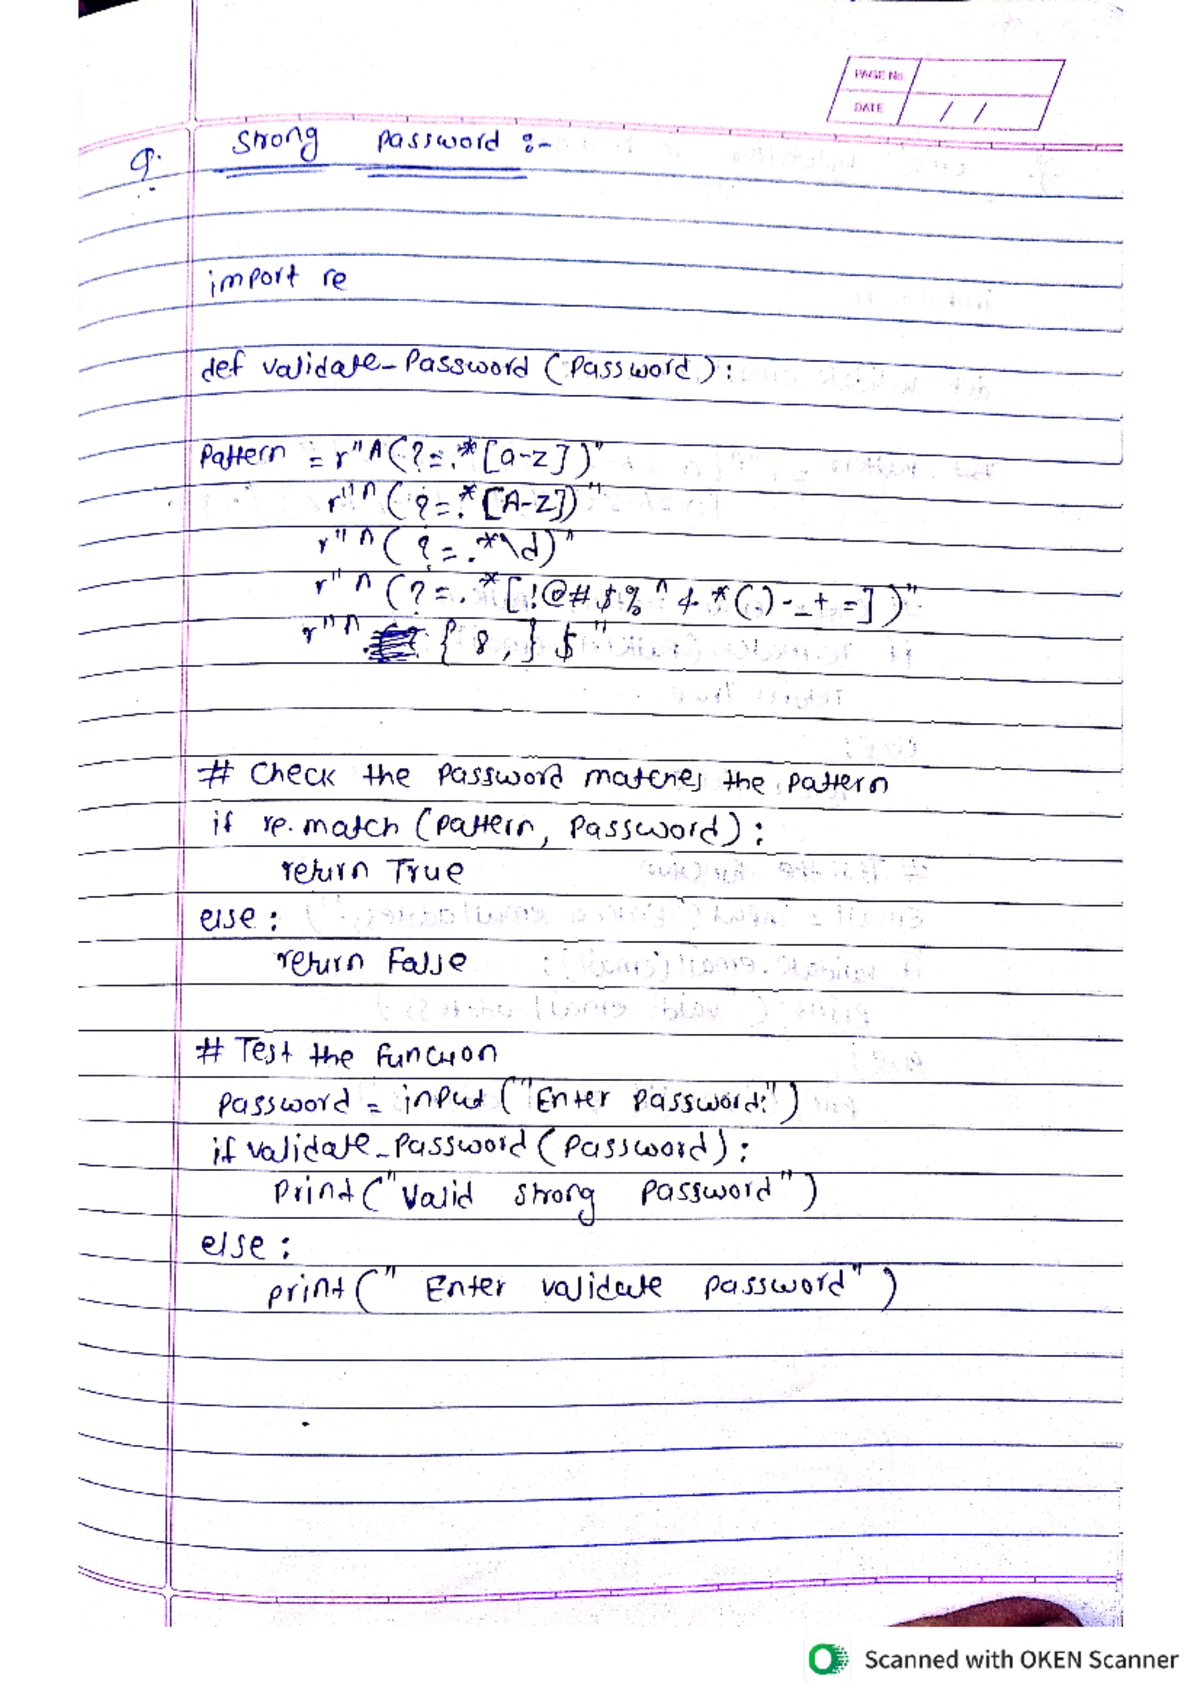 PAGE No.
DATE / /
Q. Strong Password :-
import re
def validate_Password (Password) :
Pattern = r"^(?=.*[a-z])"
r"^(?=.*[A-Z])"
r"^(?=.*\d)"
r"^(?=.*[!@#$%^&*()-_+=])"
r"^.{8,}$"
# Check the Password matches the pattern
if re.match (Pattern, Password) :
return True
else :
return False
# Test the function
password = input ("Enter Password:")
if validate_Password (Password) :
Print ("Valid strong Password")
else :
print (" Enter validate password")
Scanned with OKEN Scanner